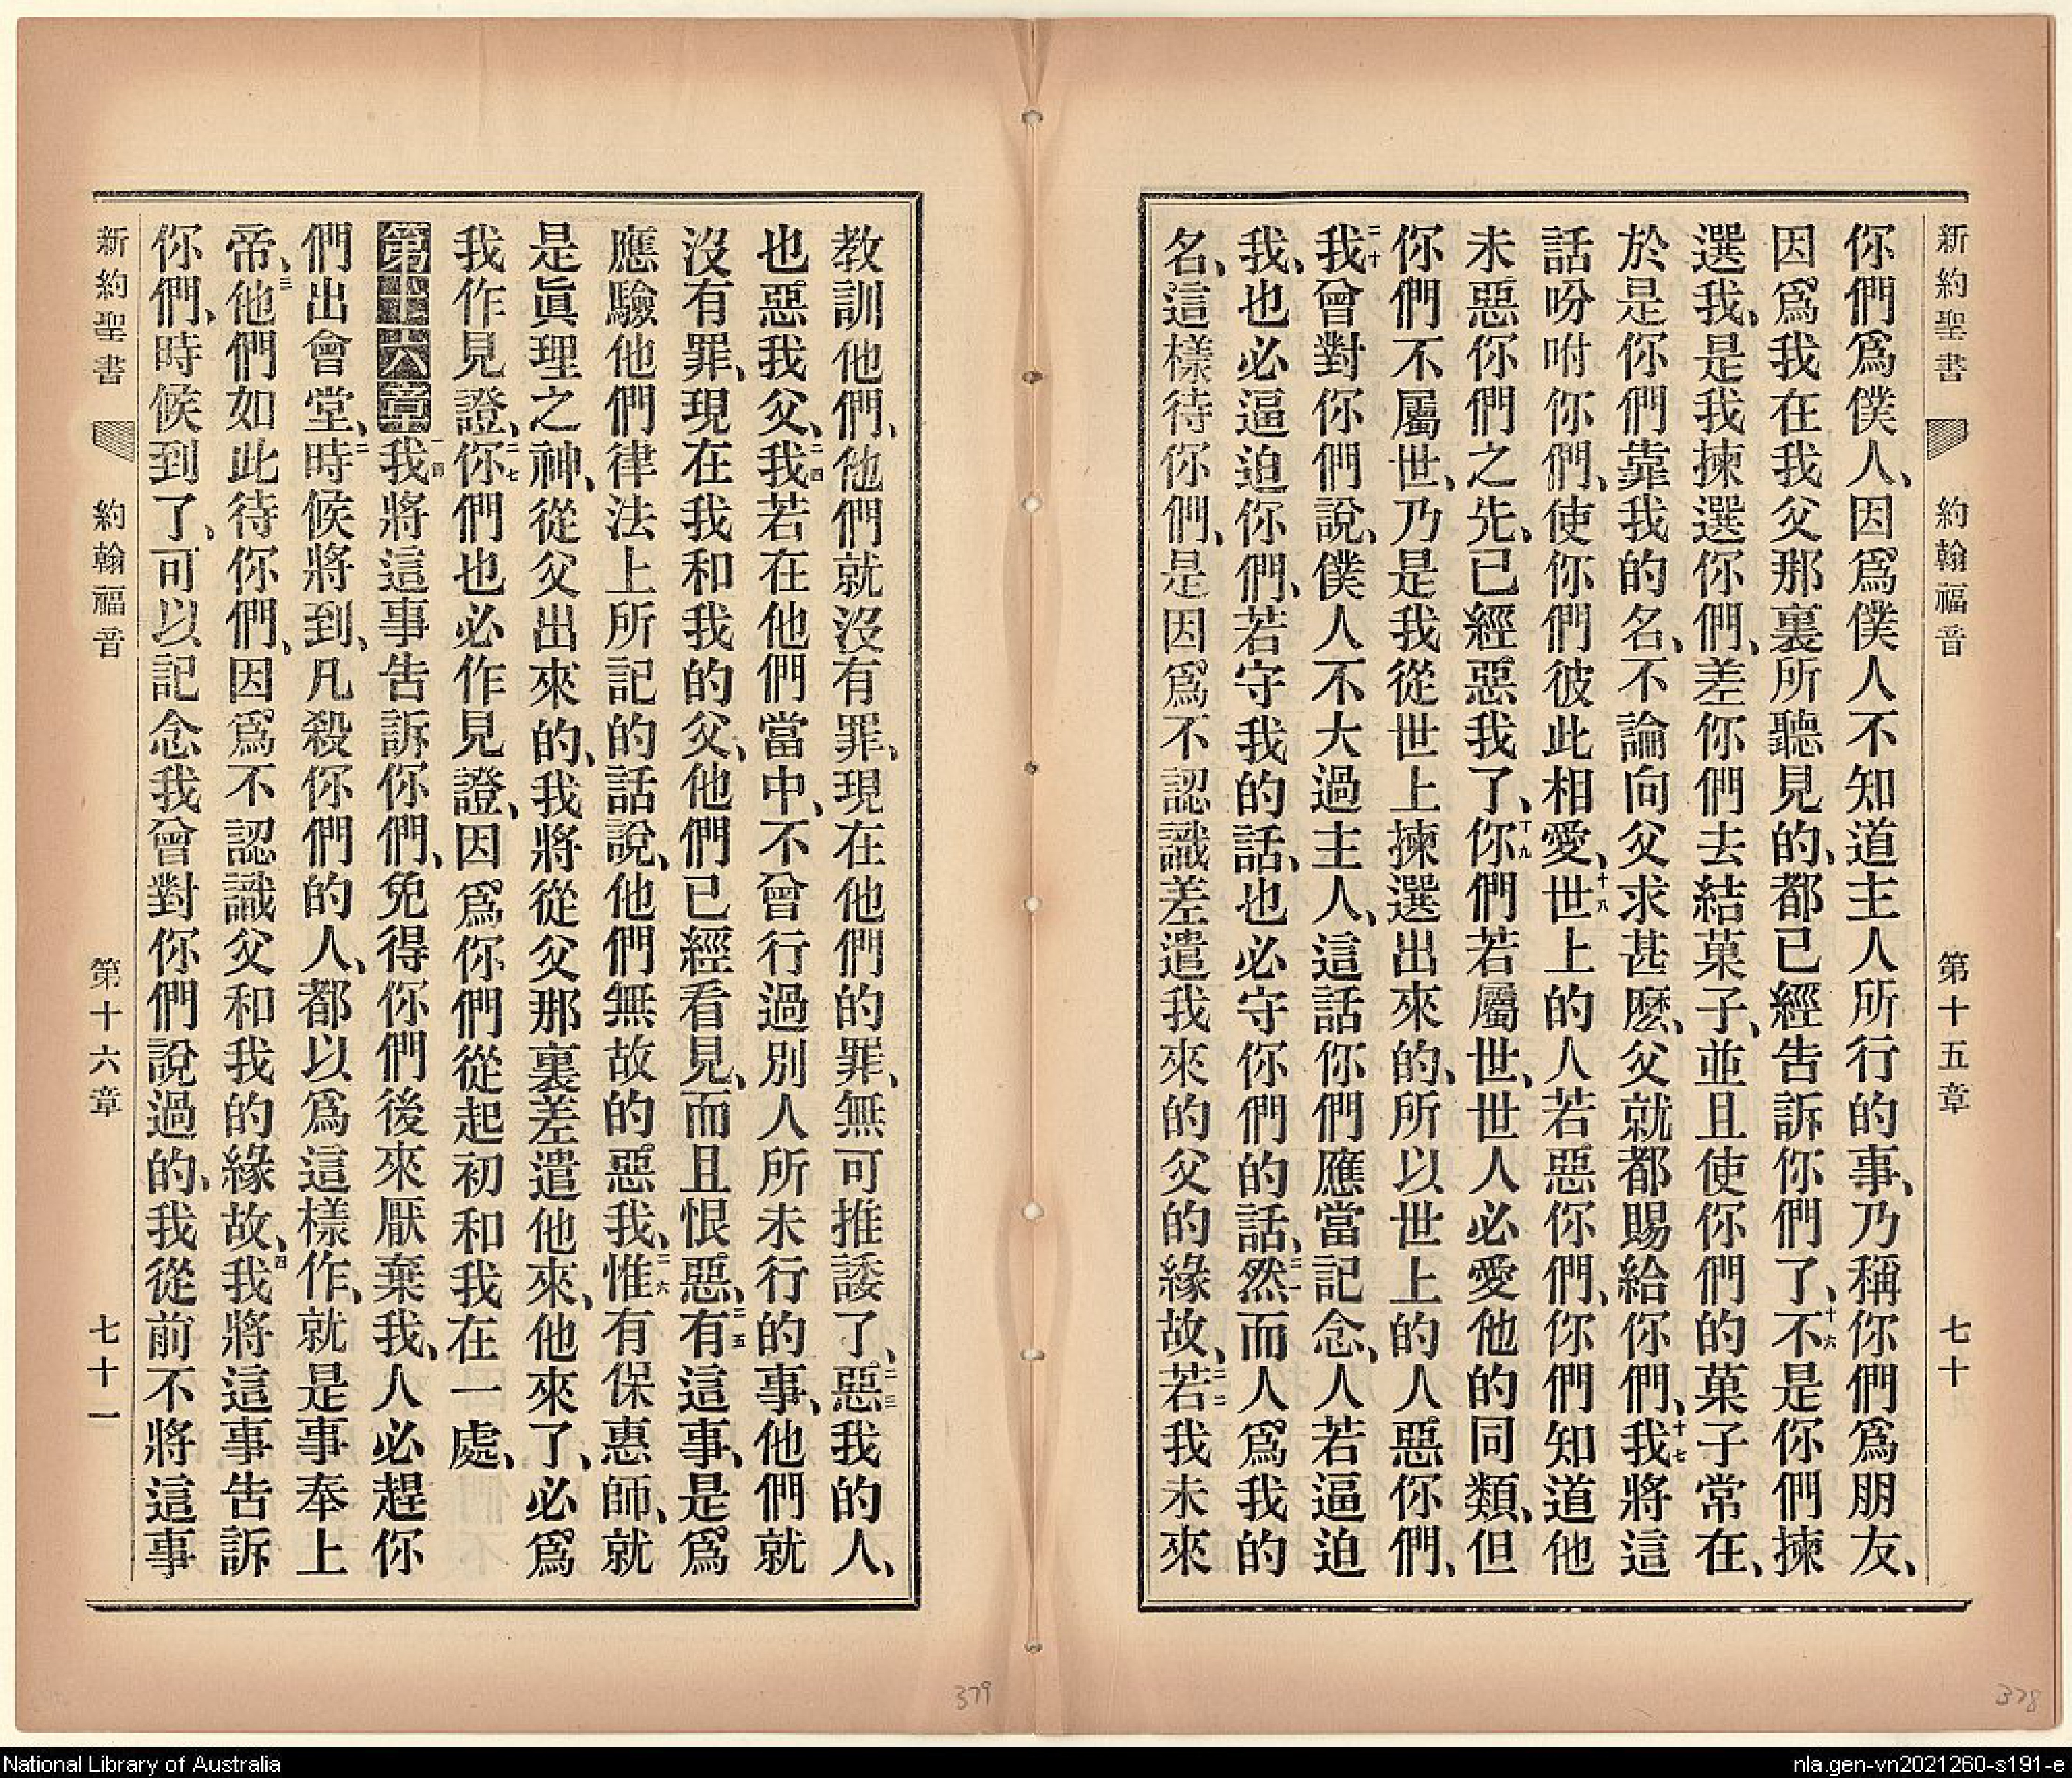 新約聖書 約翰福音 第十五章 七十
你們爲僕人、因爲僕人不知道主人所行的事、乃稱你們爲朋友、
因爲我在我父那裏所聽見的、都已經告訴你們了、十六不是你們揀
選我、是我揀選你們、差你們去結菓子、並且使你們的菓子常在、
於是你們靠我的名、不論向父求甚麽、父就都賜給你們、十七我將這
話吩咐你們、使你們彼此相愛、十八世上的人若惡你們、你們知道他
未惡你們之先、已經惡我了、十九你們若屬世、世人必愛他的同類、但
你們不屬世、乃是我從世上揀選出來的、所以世上的人惡你們、
二十我曾對你們說、僕人不大過主人、這話你們應當記念、人若逼迫
我、也必逼迫你們、若守我的話、也必守你們的話、二一然而人爲我的
名、這樣待你們、是因爲不認識差遣我來的父的緣故、二二若我未來
教訓他們、他們就沒有罪、現在他們的罪、無可推諉了、二三惡我的人、
也惡我父、二四我若在他們當中、不曾行過別人所未行的事、他們就
沒有罪、現在我和我的父、他們已經看見、而且恨惡、二五有這事、是爲
應驗他們律法上所記的話說、他們無故的惡我、二六惟有保惠師、就
是眞理之神、從父出來的、我將從父那裏差遣他來、他來了、必爲
我作見證、二七你們也必作見證、因爲你們從起初和我在一處、
第十六章一我將這事告訴你們、免得你們後來厭棄我、人必趕你
們出會堂、二時候將到、凡殺你們的人、都以爲這樣作、就是事奉上
帝、三他們如此待你們、因爲不認識父和我的緣故、四我將這事告訴
你們、時候到了、可以記念我曾對你們說過的、我從前不將這事
新約聖書 約翰福音 第十六章 七十一
379
378
National Library of Australia
nla.gen-vn2021260-s191-e